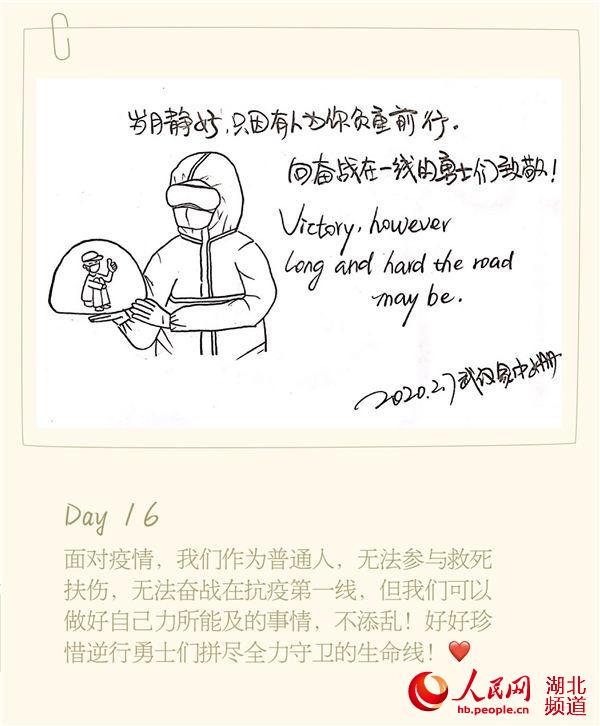 岁月静好，只因有人为你负重前行。
向奋战在一线的勇士们致敬！
Victory, however
long and hard the road
may be.
2020.2.7 武汉
Day 16
面对疫情，我们作为普通人，无法参与救死
扶伤，无法奋战在抗疫第一线，但我们可以
做好自己力所能及的事情，不添乱！好好珍
惜逆行勇士们拼尽全力守卫的生命线！
人民网 湖北
hb.people.cn 频道